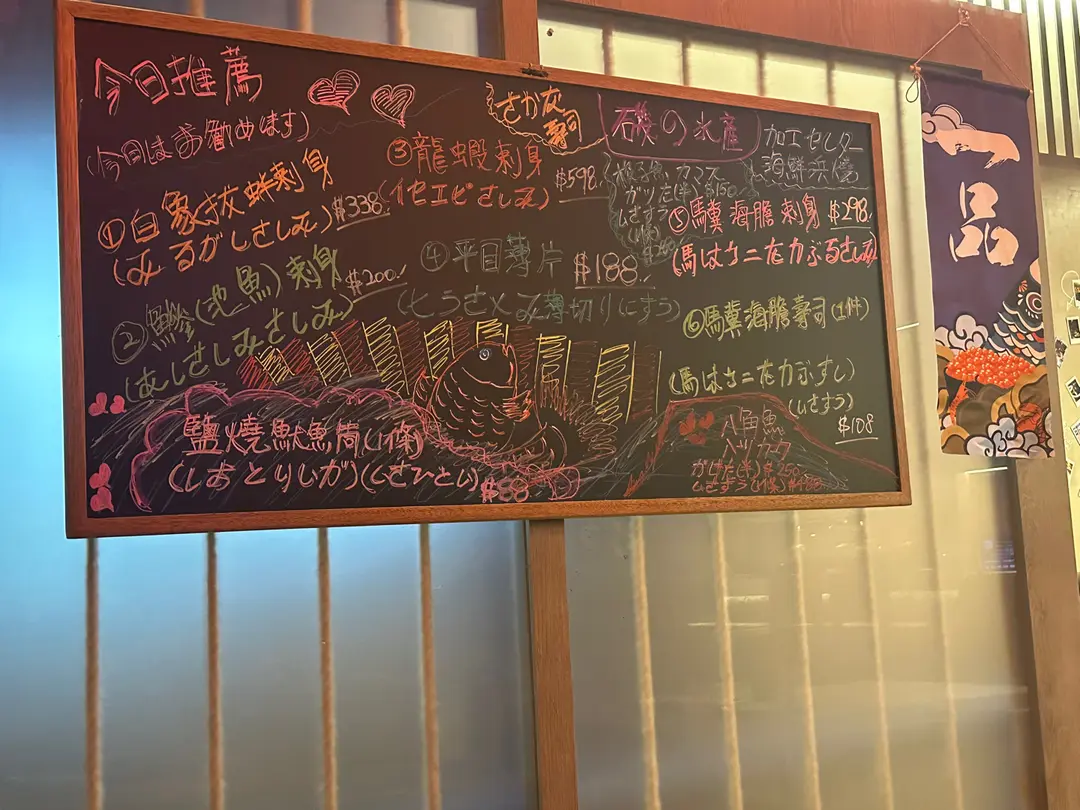 今日推薦
(今日はお勧めます)
①白象拔蚌刺身
(みるがしさしみ) $338
②鰺(池魚)刺身 $200
(あしさしみさしみ)
③龍蝦刺身
(イセエビさしみ) $598
④平目薄片 $188
薄切りにすう)
さか灰
壽司
磯の水産
加工センター
海鮮浜燒
カマス
$150
⑤馬糞海膽刺身 $298
(馬はさニたカぶるさしみ)
⑥馬糞海膽壽司(1件)
(馬はさニたカぶすし)
(ムさすう)
$108
鹽燒魷魚筒(1條)
(しおとりしいが)(ムさひとい) $88
八角魚
ハツカク
$250
一品